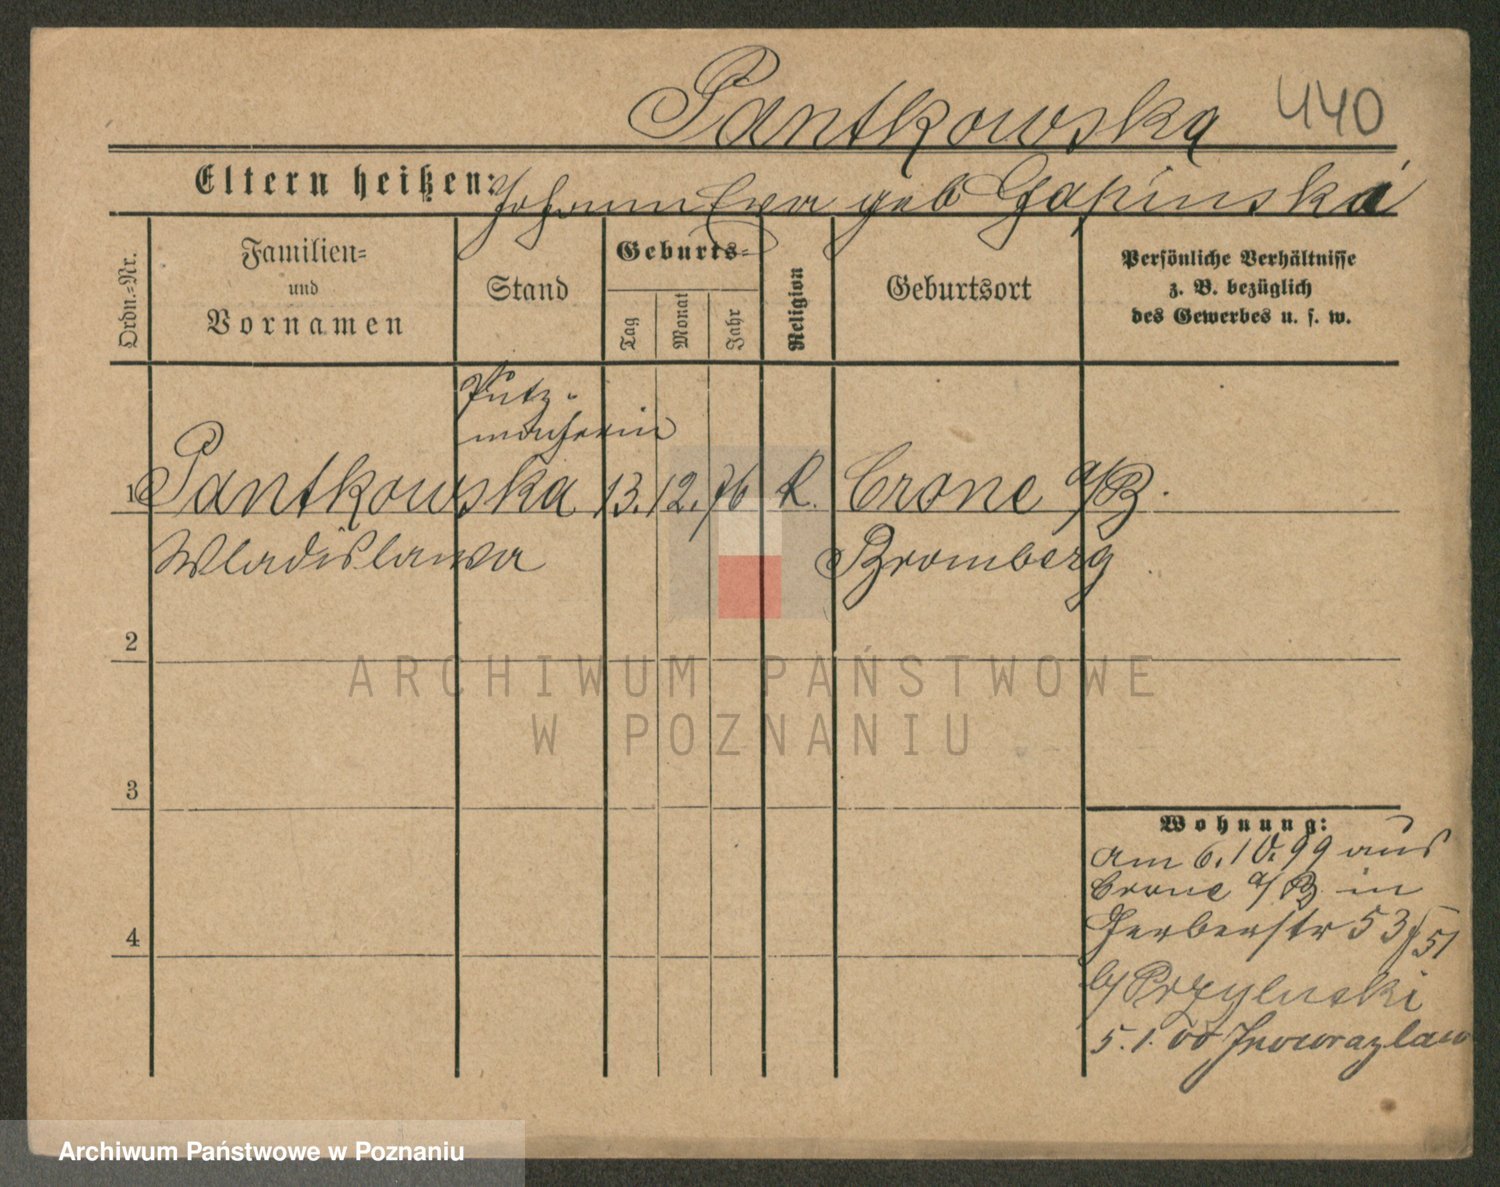 Pantkowska 440
Eltern heißen: Johann Eva geb Gapinska
Ordn.=Nr.
Familien=
und
Vornamen
Stand
Geburts=
Tag
Monat
Jahr
Religion
Geburtsort
Persönliche Verhältnisse
z. B. bezüglich
des Gewerbes u. s. w.
Putz-
macherin
1 Pantkowska 13. 12. 76 K. Crone a/B.
Wladislawa Bromberg
2
3
4
Wohnung:
am 6.10.99 aus
Crone a/B in
Gerberstr 53 51
b/
5.1.00 Inowrazlaw
ARCHIWUM PAŃSTWOWE
W POZNANIU
Archiwum Państwowe w Poznaniu